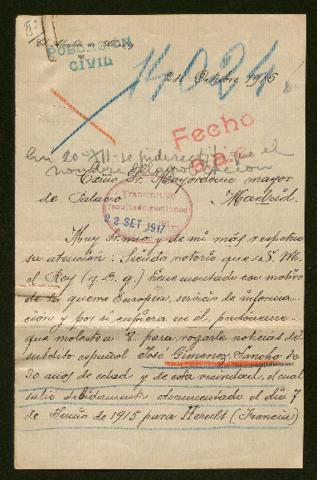 POBLACION
CIVIL
14024
Octubre 1915
Fecho
En 20-XII- se
Excmo Sr. Mayordomo mayor
de Palacio Madrid.
Tramitado
22 SET 1917
Muy Sr mio y de mi más respetuosa
atención: Siendo notorio que S. M.
el Rey (q. D. g.) tiene montado con motivo
de la guerra Europea, servicio de informa-
ción y por si cupiera en él, perdóneme
que moleste a V. para rogarle noticias del
subdito español José Gimenez Sancho de
30 años de edad y de esta vecindad, el cual
salió debidamente documentado el dia 7
de Junio de 1915 para (Francia)